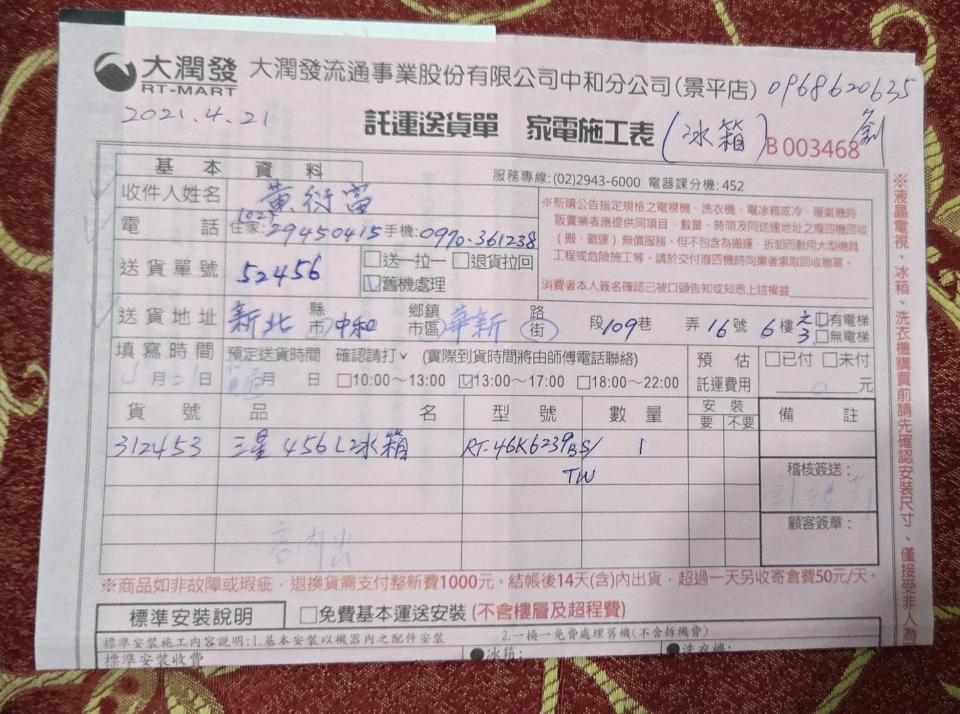 大潤發 RT-MART 大潤發流通事業股份有限公司中和分公司(景平店) 0968620635
2021.4.21 託運送貨單 家電施工表 (冰箱) B 003468 劉
基本資料 服務專線:(02)2943-6000 電器課分機:452
收件人姓名 黃衍富
電話 住家:29450415 手機:0970-361238
送貨單號 52456 □送一拉一 □退貨拉回
☑舊機處理
※新購公告指定規格之電視機、洗衣機、電冰箱或冷、暖氣機時,
販賣業者應提供同項目、數量、時間及同送達地址之廢四機回收
(搬、載運)無償服務,但不包含為搬運、拆卸而動用大型機具
工程或危險施工等。請於交付廢四機時向業者索取回收聯單。
消費者本人簽名確認已被口頭告知或知悉上述權益
送貨地址 新北 縣市 中和 鄉鎮市區 華新 路街 段 109 巷 弄 16 號 6 樓 之3 ☑有電梯 □無電梯
填寫時間 預定送貨時間 確認請打✓ (實際到貨時間將由師傅電話聯絡) 預估 □已付 □未付
4 月 21 日 月 日 □10:00~13:00 ☑13:00~17:00 □18:00~22:00 託運費用 0 元
貨號 品名 型號 數量 安裝 要 不要 備註
312453 三星456L冰箱 RT-46K6239BS/ 1
TW
稽核簽送:
顧客簽章:
店內出
※商品如非故障或瑕疵,退換貨需支付整新費1000元。結帳後14天(含)內出貨,超過一天另收寄倉費50元/天。
標準安裝說明 □免費基本運送安裝(不含樓層及超程費)
標準安裝施工內容說明:1.基本安裝以機器內之配件安裝 2.一換一免費處理舊機(不含拆機費)
標準安裝收費 ●冰箱: ●洗衣機:
※液晶電視、冰箱、洗衣機購買前請先確認安裝尺寸,僅接受非人為